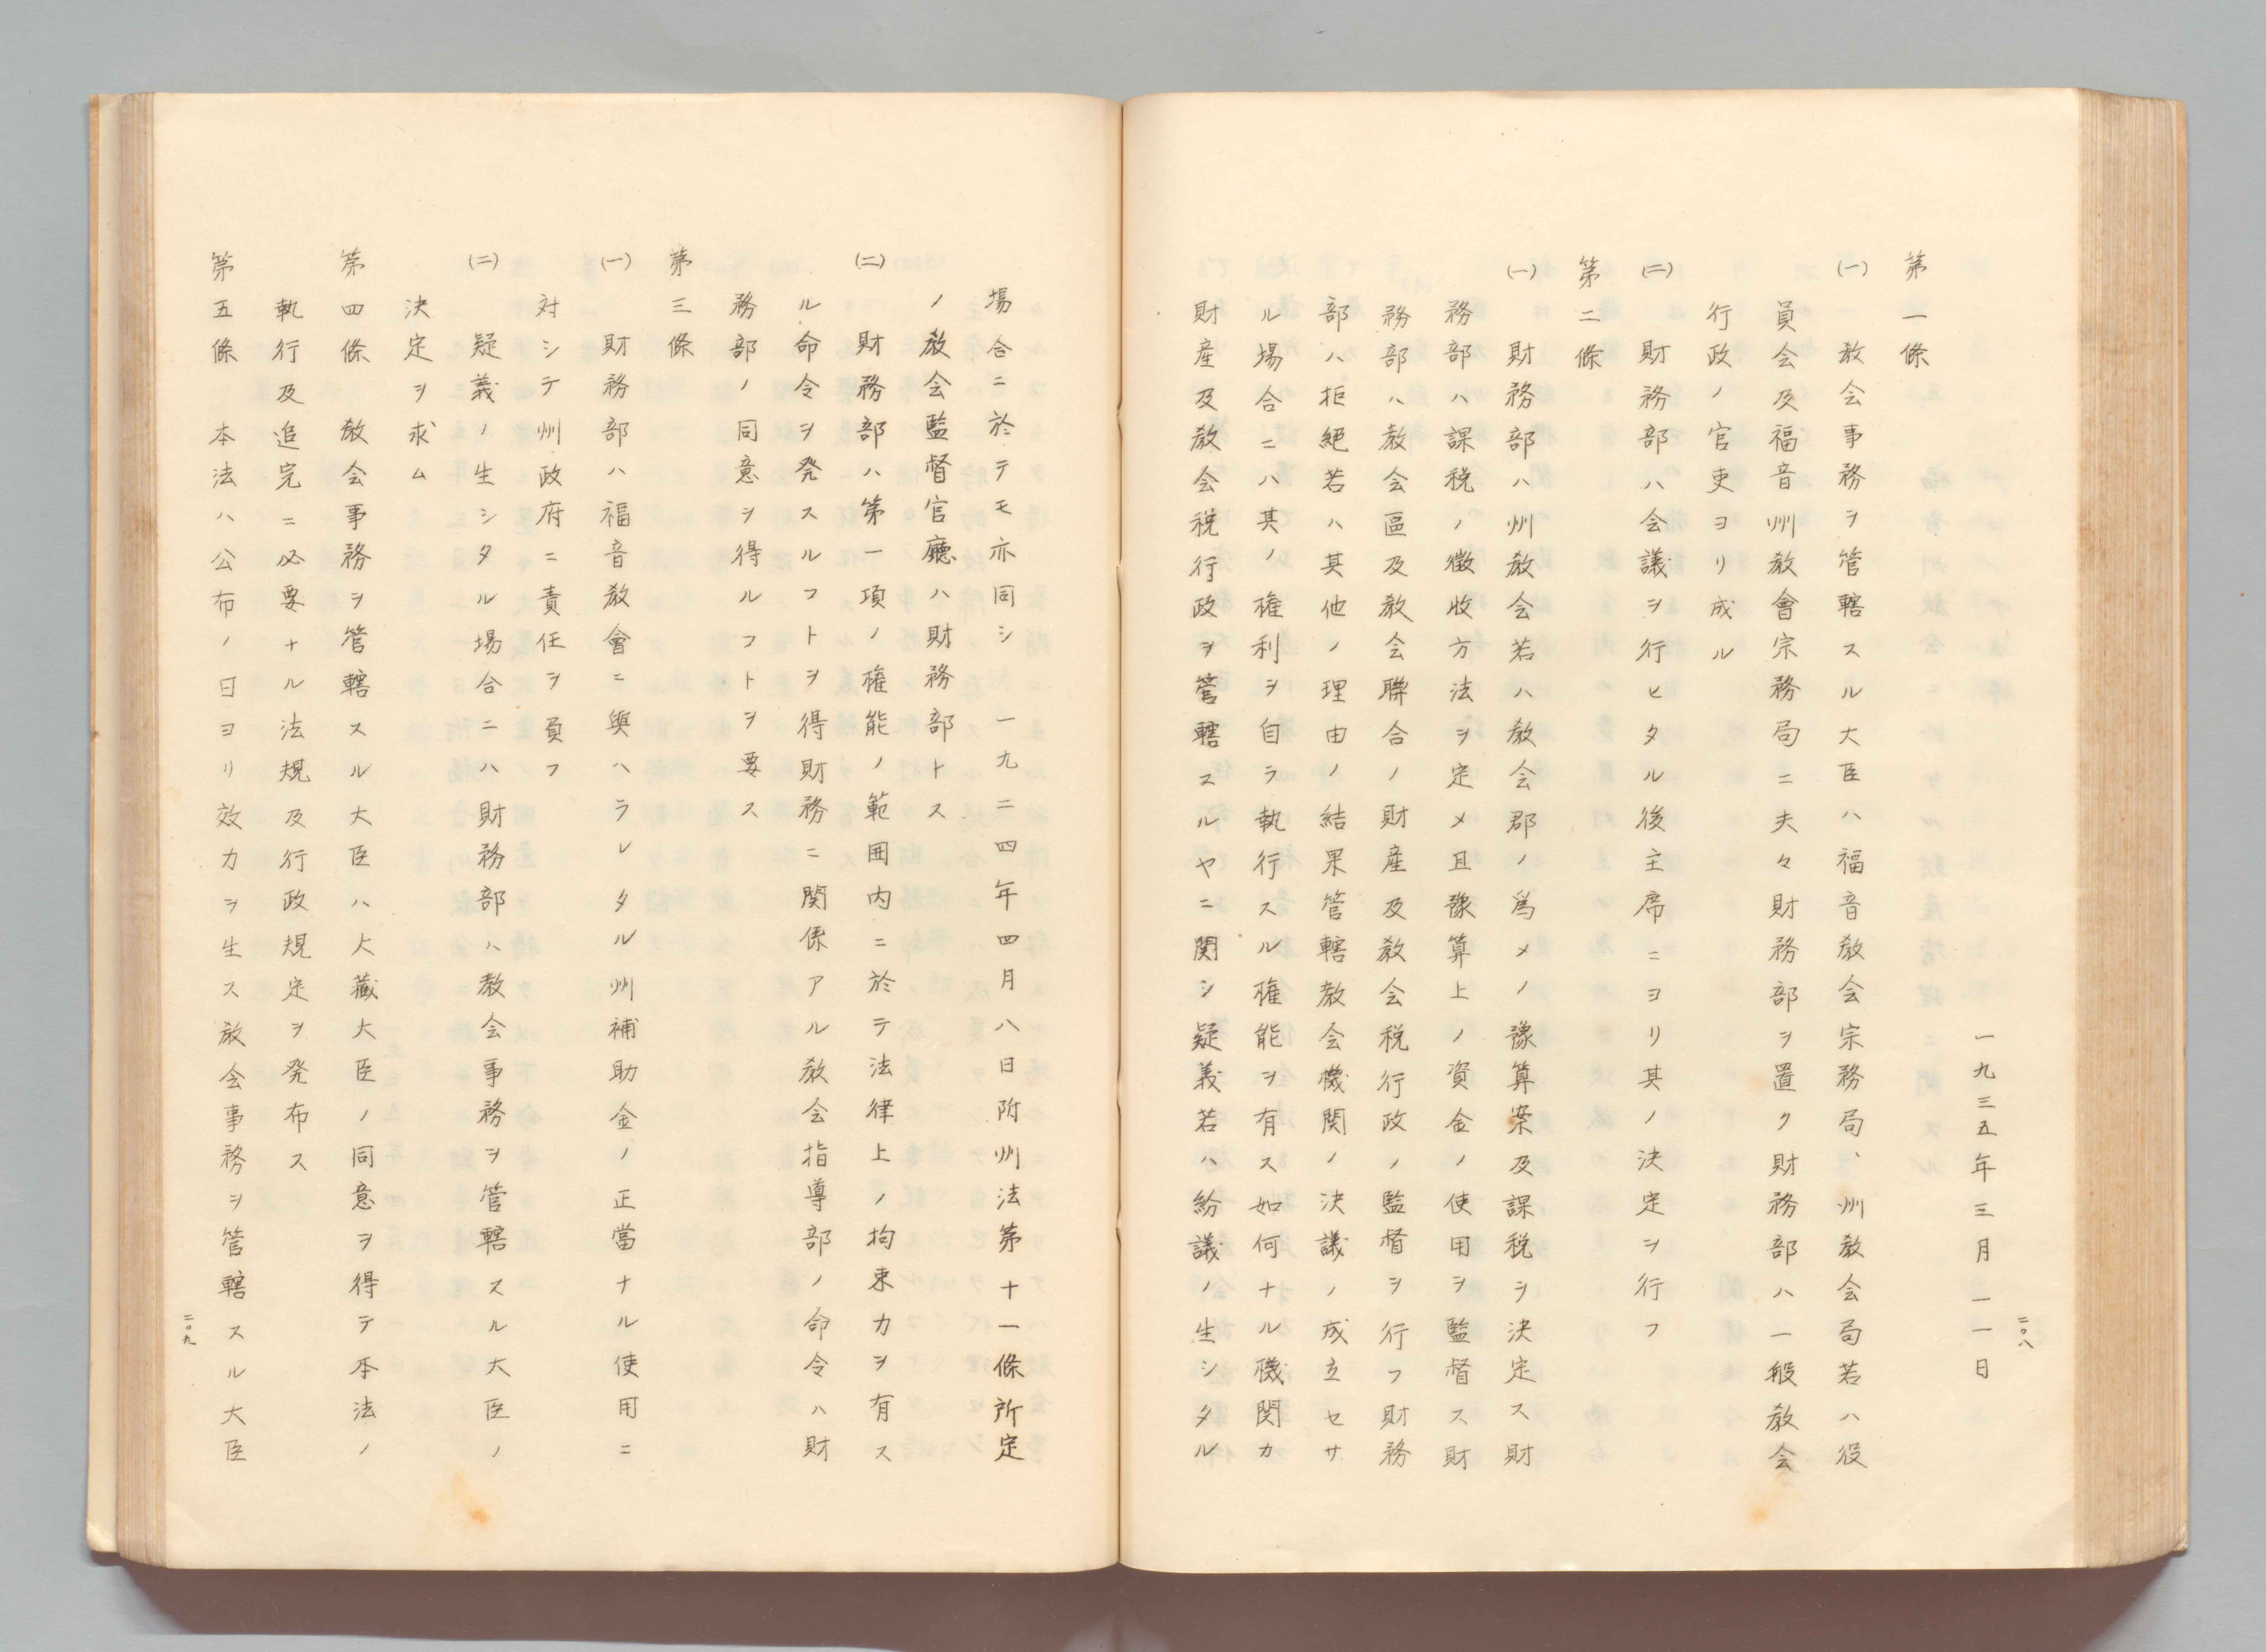 一九三五年三月一一日
第一條
(一) 教会事務ヲ管轄スル大臣ハ福音教会宗務局、州教会局若ハ役
員会及福音州教會宗務局ニ夫々財務部ヲ置ク財務部ハ一般教会
行政ノ官吏ヨリ成ル
(二) 財務部ハ会議ヲ行ヒタル後主席ニヨリ其ノ決定ヲ行フ
第二條
(一) 財務部ハ州教会若ハ教会郡ノ爲メノ豫算案及課税ヲ決定ス財
務部ハ課税ノ徴收方法ヲ定メ且豫算上ノ資金ノ使用ヲ監督ス財
務部ハ教会區及教会聯合ノ財産及教会税行政ノ監督ヲ行フ財務
部ハ拒絶若ハ其他ノ理由ノ結果管轄教会機関ノ決議ノ成立セサ
ル場合ニハ其ノ権利ヲ自ラ執行スル権能ヲ有ス如何ナル機関カ
財産及教会税行政ヲ管轄スルヤニ関シ疑義若ハ紛議ノ生シタル
二〇八
場合ニ於テモ亦同シ 一九二四年四月八日附州法第十一條所定
ノ教会監督官廳ハ財務部トス
(二) 財務部ハ第一項ノ権能ノ範囲内ニ於テ法律上ノ拘束力ヲ有ス
ル命令ヲ発スルコトヲ得財務ニ関係アル教会指導部ノ命令ハ財
務部ノ同意ヲ得ルコトヲ要ス
第三條
(一) 財務部ハ福音教會ニ與ハラレタル州補助金ノ正當ナル使用ニ
対シテ州政府ニ責任ヲ負フ
(二) 疑義ノ生シタル場合ニハ財務部ハ教会事務ヲ管轄スル大臣ノ
決定ヲ求ム
第四條 教会事務ヲ管轄スル大臣ハ大藏大臣ノ同意ヲ得テ本法ノ
執行及追完ニ必要ナル法規及行政規定ヲ発布ス
第五條 本法ハ公布ノ日ヨリ效力ヲ生ス教会事務ヲ管轄スル大臣
二〇九